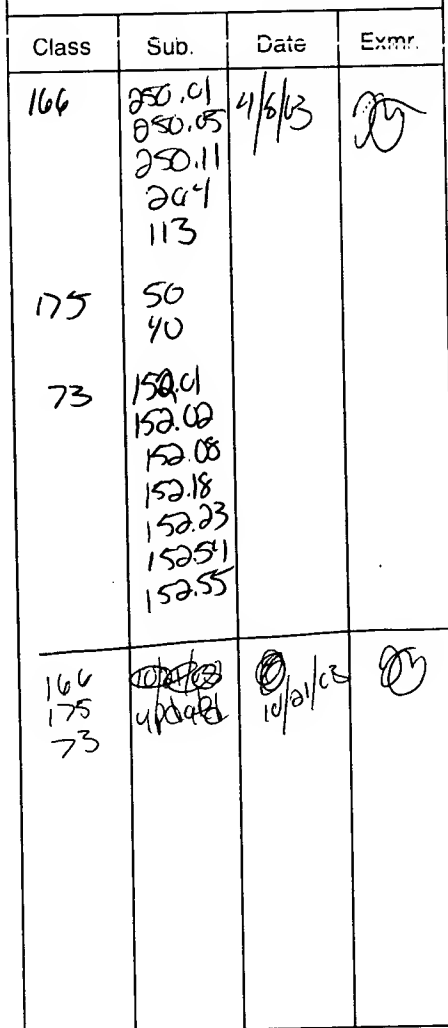 Class Sub. Date Exmr.
166 250.01 4/8/03
250.05
250.11
264
113
175 50
40
73 152.01
152.02
152.08
152.18
152.23
152.54
152.55
166
175 updated 10/21/03
73